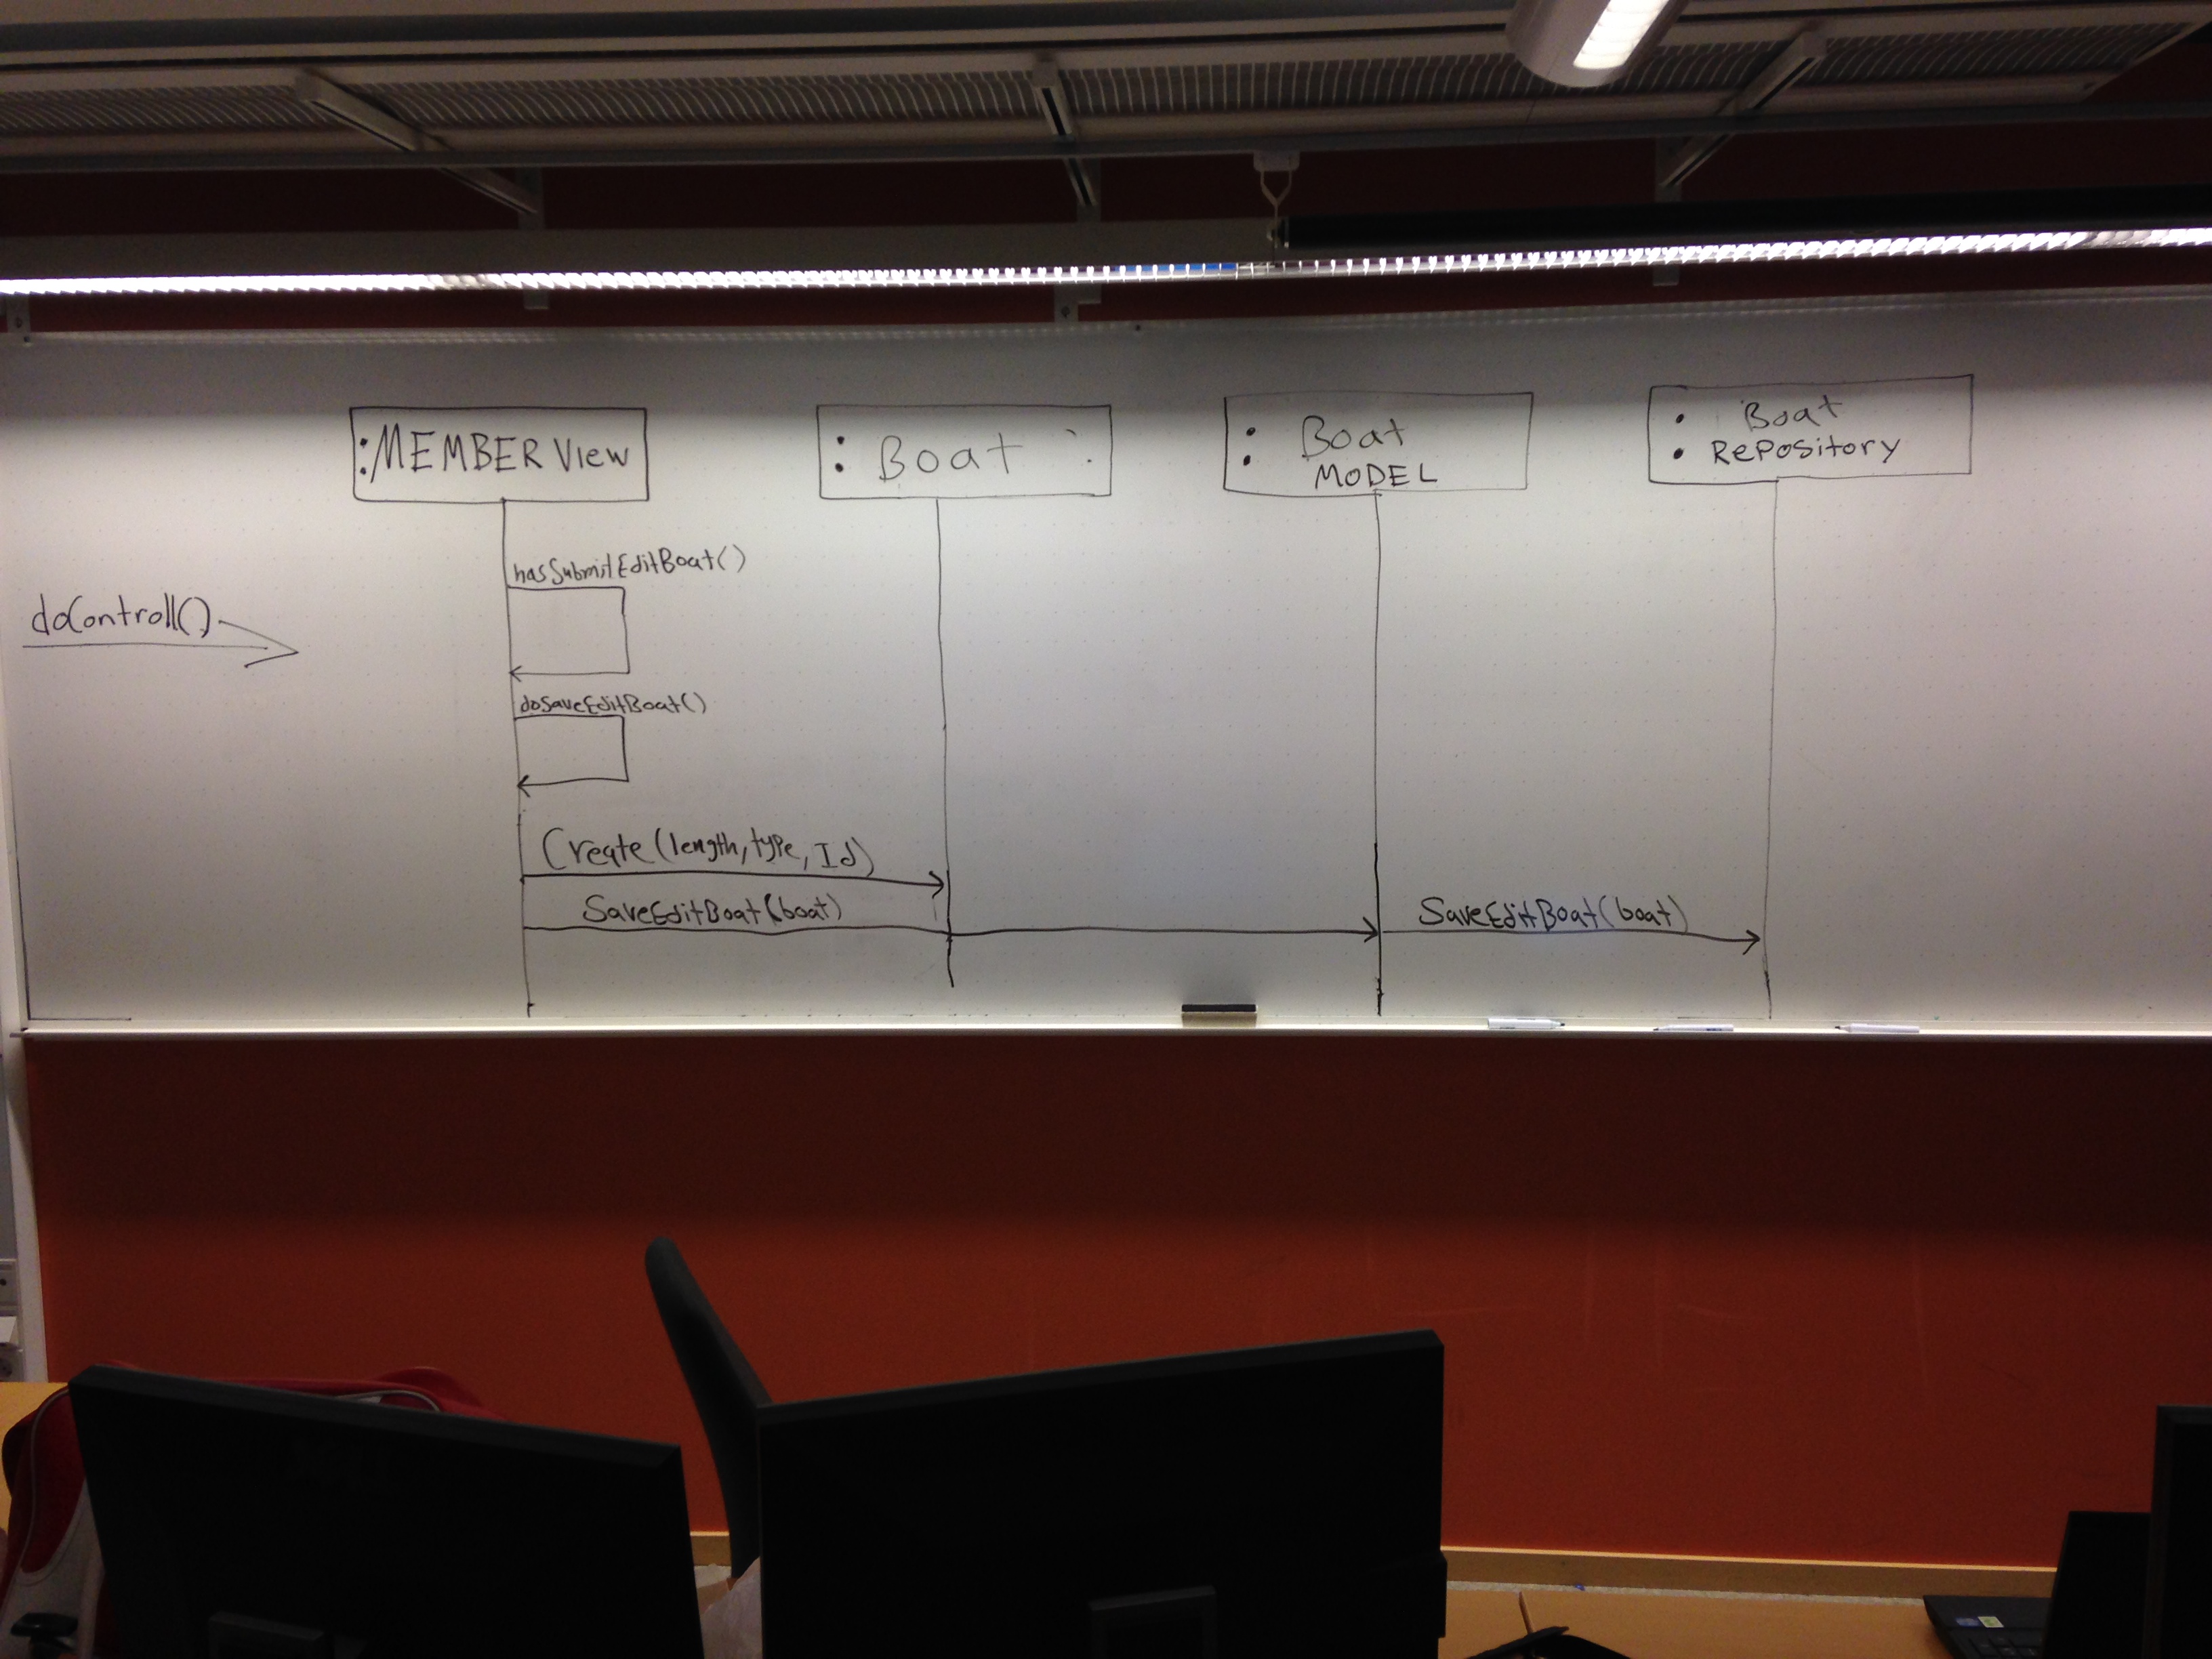 :MEMBER View
: Boat :
: Boat
MODEL
: Boat
Repository
hasSubmitEditBoat()
doControll()
doSaveEditBoat()
Create(length, type, Id)
SaveEditBoat(boat)
SaveEditBoat(boat)